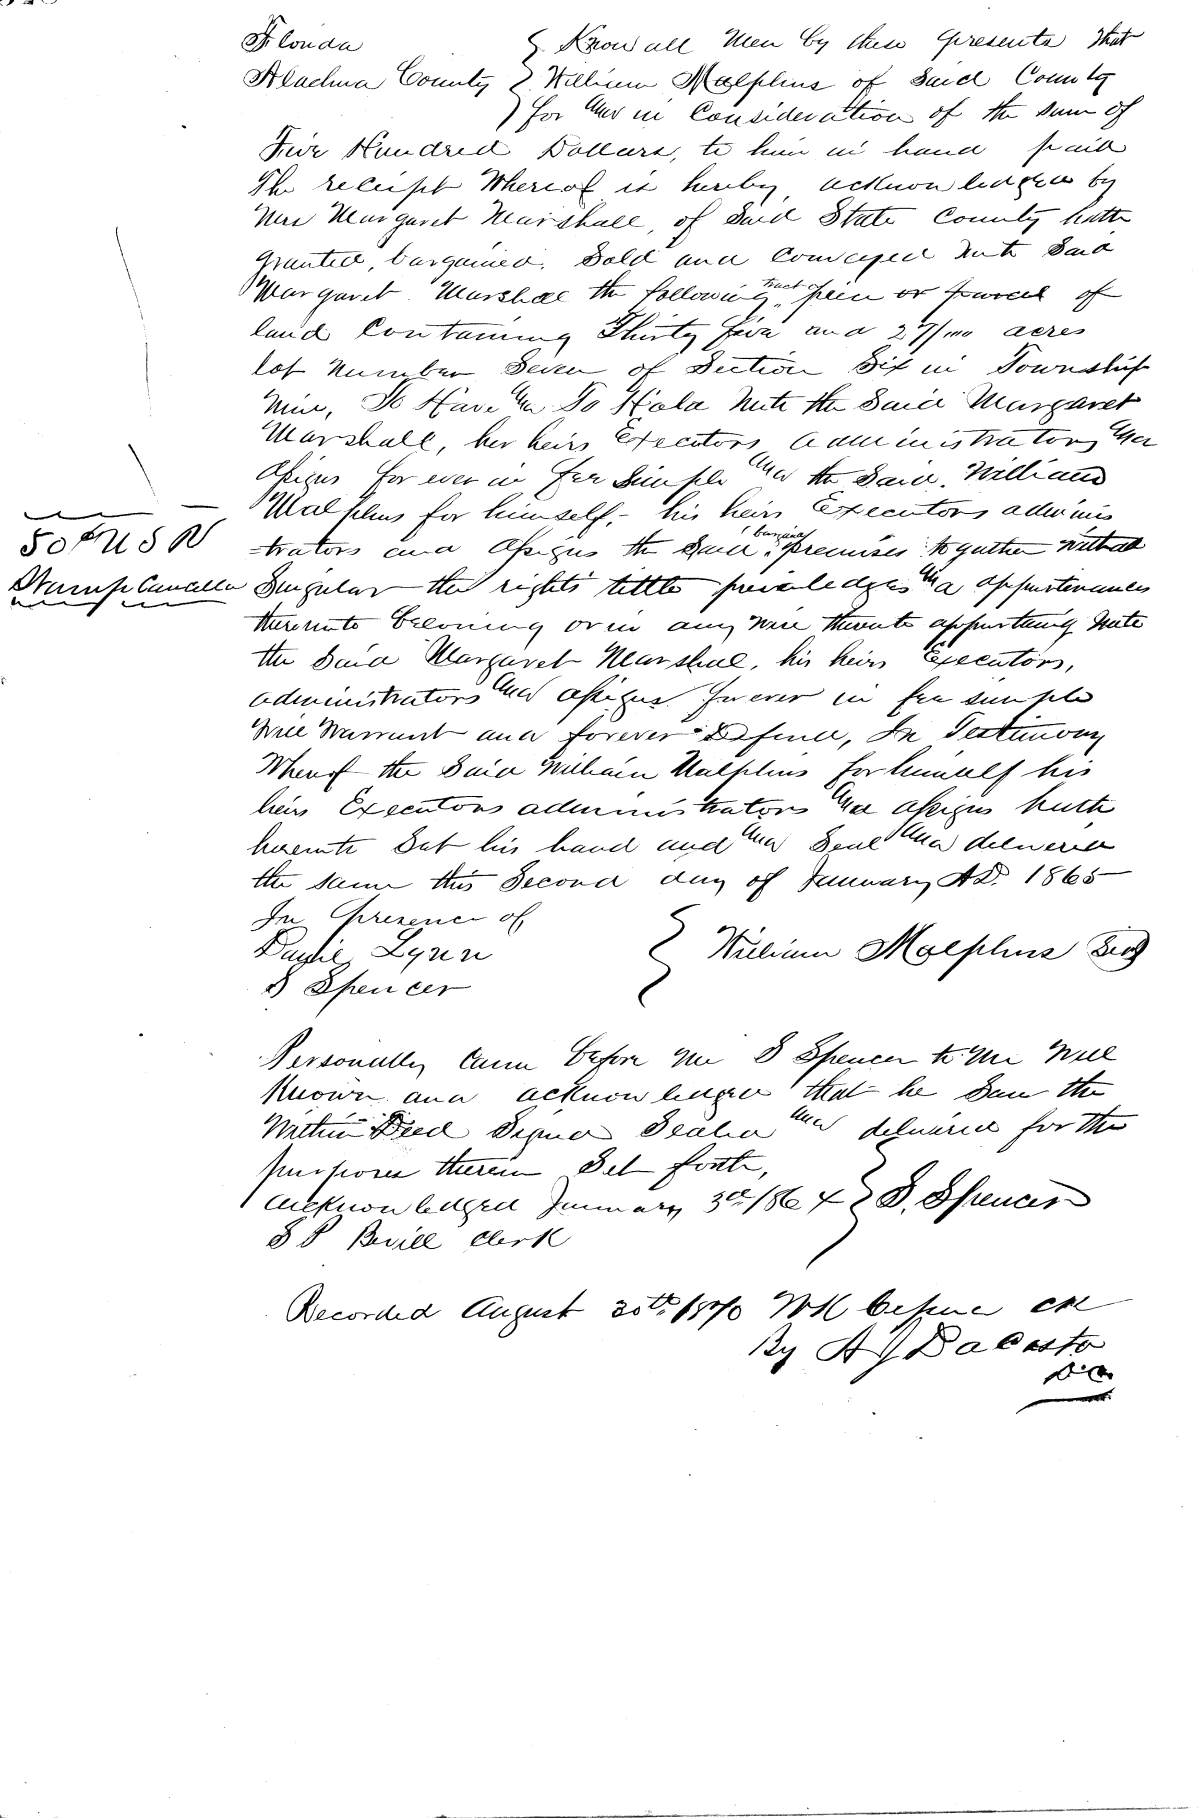 Florida } Know all Men by these presents that
Alachua County } William Malphus of Said County
for and in Consideration of the sum of
Five Hundred Dollars, to him in hand paid
The receipt Whereof is hereby acknowledged by
Mrs Margaret Marshall, of Said State County hath
granted, bargained, Sold and Conveyed unto Said
Margaret Marshall the following tract or piece or parcel of
land Containing Thirty five and 27/100 acres
lot Number Seven of Section Six in Township
Nine, To Have and To Hold unto the Said Margaret
Marshall, her heirs Executors administrators and
assigns for ever in fee Simple and the Said William
Malphus for himself, his heirs Executors adminis
-trators and assigns the Said bargained premises together with all
50 cts U S R
Stamp Cancelled
Singular the rights tittle priviledges and appurtenances
thereunto belonging or in any wise thereunto appertaing unto
the Said Margaret Marshall, his heirs Executors,
administrators and assigns forever in fee simple
Will Warrant and forever Defend, In Testimony
Whereof the Said William Malphus for himself his
heirs Executors administrators and assigns hath
hereunto Set his hand and and Seal and delivered
the same this Second day of January AD. 1865
In presence of
Lynn } William Malphus Seal
S Spencer
Personally Came before me S Spencer to me Well
Known and acknowledged that he Saw the
Within Deed Signed Sealed and delivered for the
purposes therein Set forth,
acknowledged January 3rd 1864 } S. Spencer
S P Bevill Clerk
Recorded August 30th 1870 WK Cessna clk
By A J Dacosta
DC